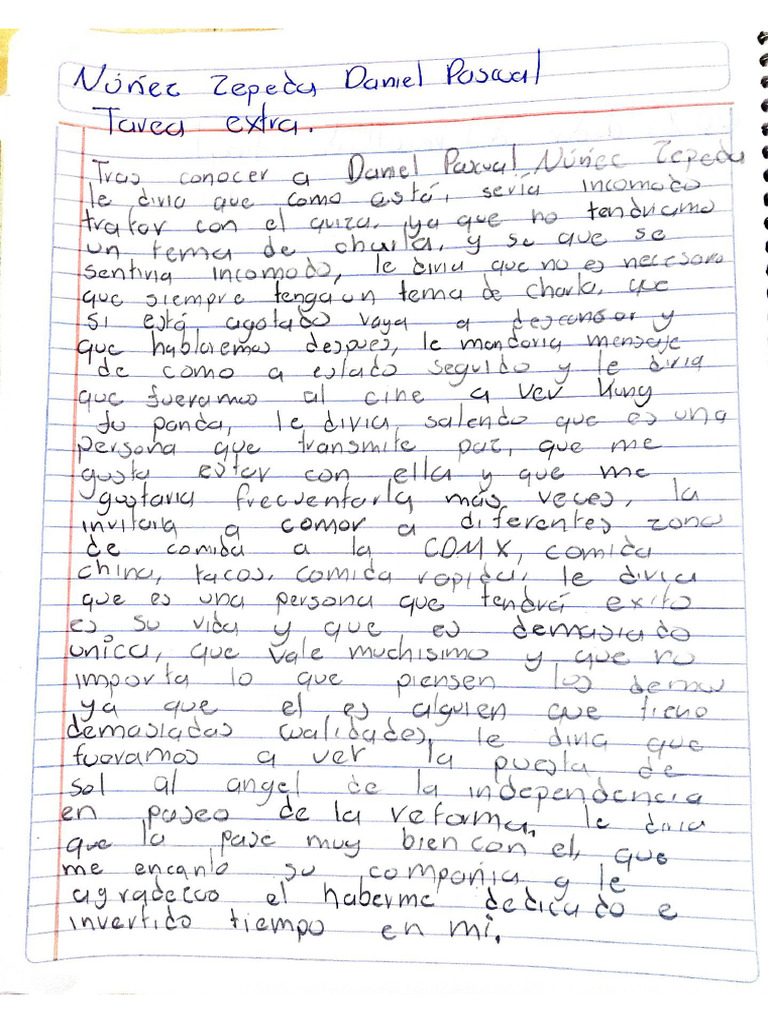 Núñez Zepeda Daniel Pascual
Tarea extra.
Tras conocer a Daniel Pascual Núñez Zepeda
le diria que como está, sería incomodo
tratar con el quiza, ya que no tendriamo
un tema de charla, y se que se
sentiria incomodo, le diria que no es necesaro
que siempre tenga un tema de charla, que
si está agotado vaya a descansar y
que hablaremos despues, le mandaria mensaje
de como a estado seguido y le diria
que fueramos al cine a ver Kung
fu panda, le diria, saliendo que es una
persona que transmite paz, que me
gusta estar con ella y que me
gustaria frecuentarla más veces, la
invitaria a comer a diferentes zona
de comida a la CDMX, comida
china, tacos, comida rapida, le diria
que es una persona que tendrá exito
es su vida y que es demasiado
unica, que vale muchisimo y que no
importa lo que piensen los demas
ya que el es alguien que tiene
demasiadas cualidades, le diria que
fueramos a ver la puesta de
sol al angel de la independencia
en paseo de la reforma, le diria
que la pase muy bien con el, que
me encanto su compañia y le
agradezco el haberme dedicado e
invertido tiempo en mi.